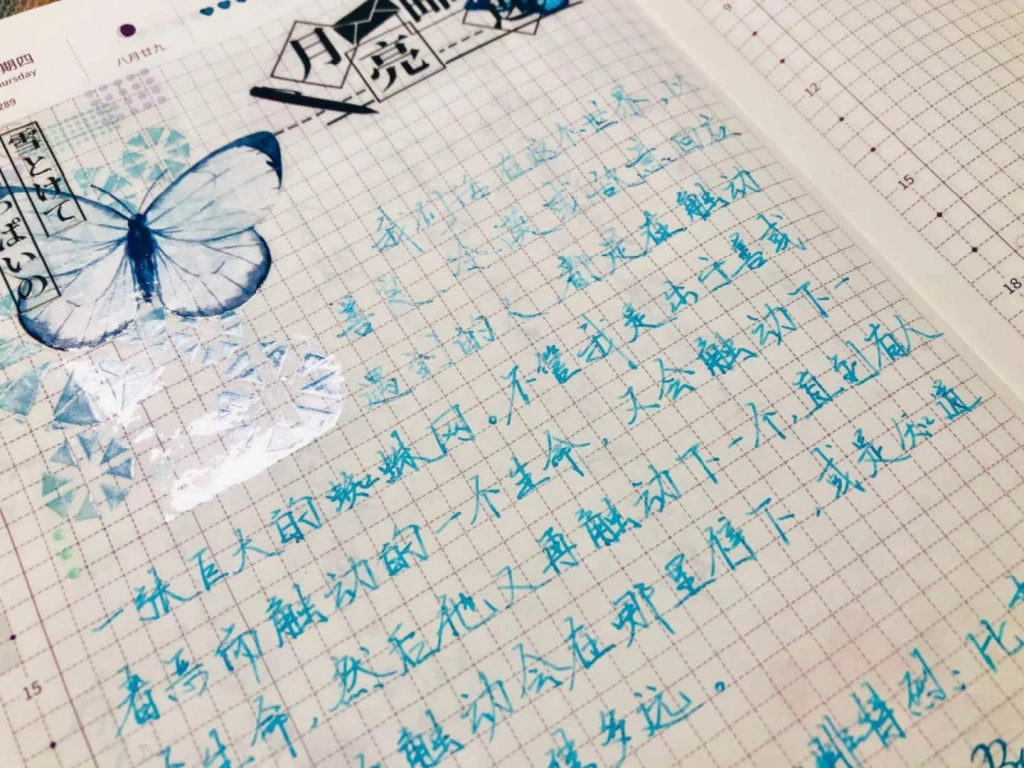 期四
ursday
289
八月廿九
月
亮
雪とけて
っぱいの
我们活在这个世界,以
善良、冷漠或故意回应
遇到的人,都是在触动
一张巨大的蜘蛛网。不管我是出于善或
者恶而触动的一个生命,又会触动下一
个生命,然后他又再触动下一个,直到有人
触动会在哪里停下,或是知道
多远。
特烈:比
9
12
15
18
15